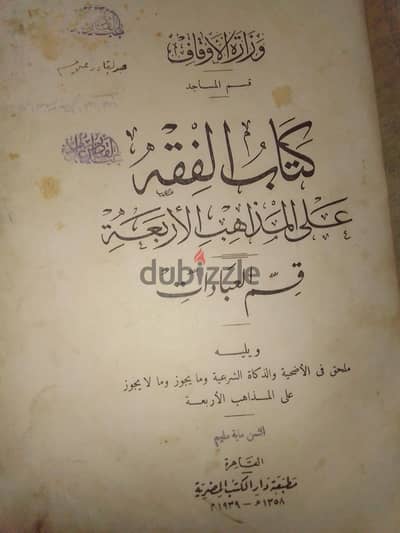 وزارة الأوقاف
قسم المساجد
كتاب الفقه
على المذاهب الأربعة
dubizzle
قسم العبادات
ويليه
ملحق فى الأضحية والذكاة الشرعية وما يجوز وما لا يجوز
على المذاهب الأربعة
الثمن مائة مليم
القاهرة
مطبعة دار الكتب المصرية
١٣٥٨ھ - ١٩٣٩م